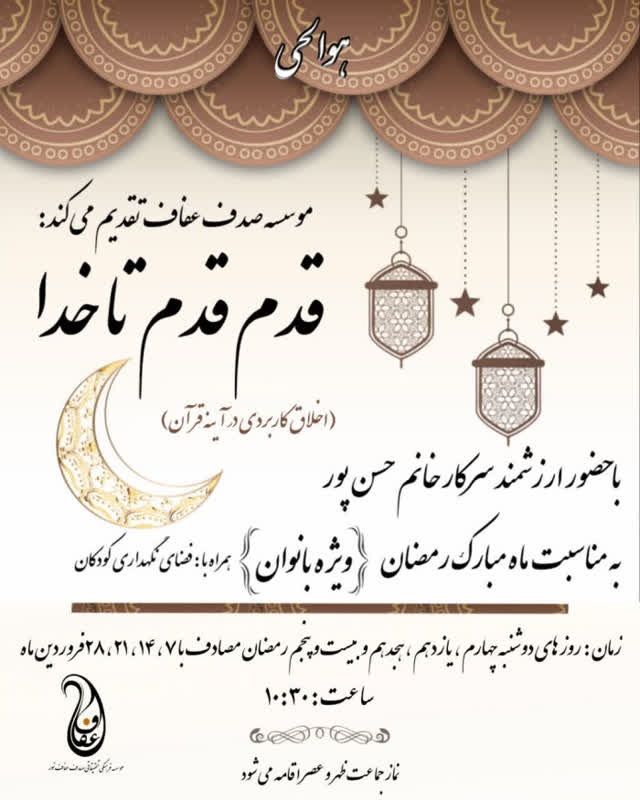 هوالحی
موسسه صدف عفاف تقدیم می کند:
قدم قدم تا خدا
(اخلاق کاربردی در آینه قرآن)
با حضور ارزشمند سرکار خانم حسن پور
به مناسبت ماه مبارک رمضان {ویژه بانوان} همراه با: فضای نگهداری کودکان
زمان: روز های دوشنبه چهارم ، یازدهم ، هجدهم و بیست و پنجم رمضان مصادف با ۷ ، ۱۴ ، ۲۱ ، ۲۸ فروردین ماه
ساعت: ۱۰:۳۰
عفاف
موسسه فرهنگی تحقیقاتی صدف عفاف نور
نماز جماعت ظهر و عصر اقامه می شود